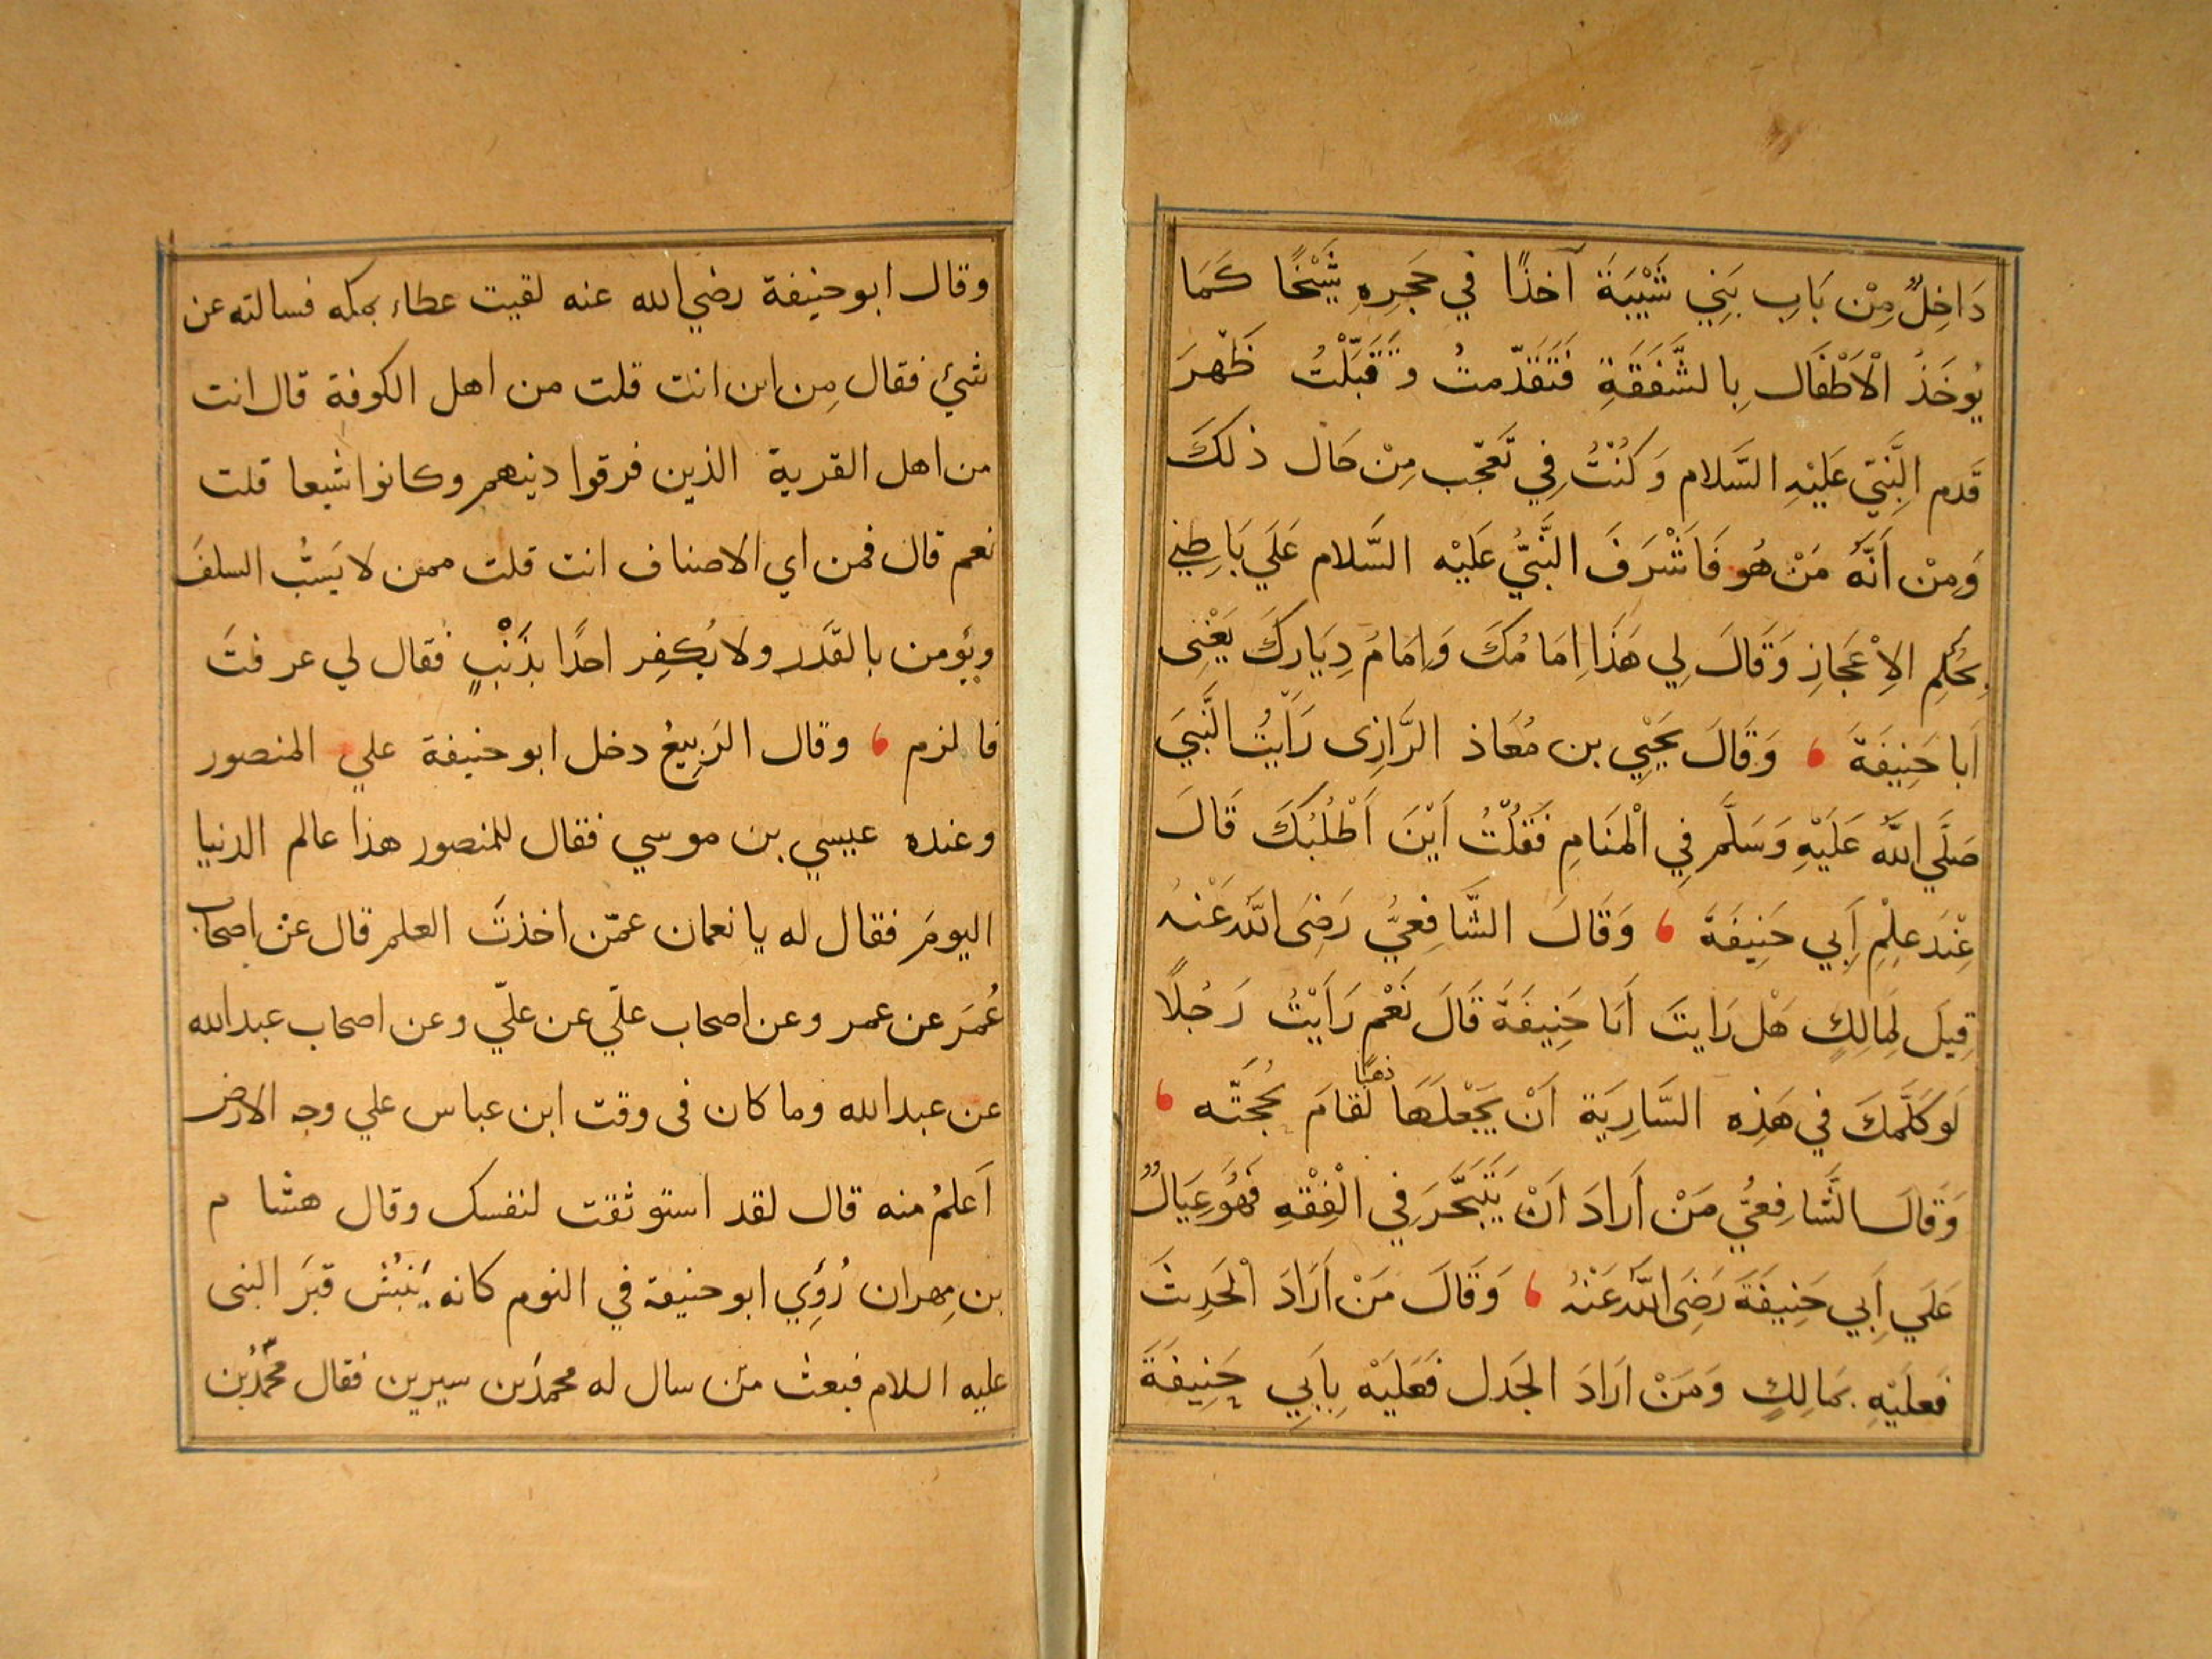 دَاخِلٌ مِنْ بَابِ بَنِي شَيْبَةَ آخذًا في حَجَرِهِ شَيْخًا كَمَا
يُوخَذُ الْاَطْفَال بِالشَّفَقَةِ فَتَقَدّمتُ وَقَبَّلْتُ ظَهْرَ
قَدم النَّبِيّ عَلَيْهِ السَّلام وَكُنْتُ فِي تَعَجّب مِنْ حَال ذلكَ
وَمِنْ اَنَّهُ مَنْ هُو فَاَشْرَفَ النَّبِيُّ عَلَيْه السَّلام عَلَي بَاطِنِي
بِحُكْمِ الاِعْجَازِ وَقَالَ لِي هَذَا اِمَامُكَ وَاِمَامُ دِيَارِكَ يَعْنِى
اَبَا حَنِيفَةَ ، وَقَالَ يَحْيِي بن مُعَاذ الرَّازِى رَاَيْتُ النَّبِيَ
صَلَّي اللَّهُ عَلَيْهِ وَسَلَّم فِي الْمَنَامِ فَقُلْتُ اَيْنَ اَطْلُبُكَ قَالَ
عِنْدَ عِلْمِ اَبِي حَنِيفَةَ ، وَقَالَ الشَّافِعِيُّ رَضِىَ اللَّهُ عَنْهُ
قِيلَ لِمَالِكٍ هَلْ رَايتَ اَبَا حَنِيفَةَ قَالَ نَعَمْ رَاَيْتُ رَجُلًا
لَوْ كَلَّمَكَ في هَذِه السَّارِيَة اَنْ يَجْعَلَهَا ذهبًا لَقَامَ بحُجَّتِه ،
وَقَالَ الشَّافِعيُّ مَنْ اَرادَ اَنْ يَتَبَحَّرَ فِي الْفِقْهِ فَهُوَ عِيَالٌ
عَلَي اَبِي حَنِيفَةَ رَضِىَ اللَّهُ عَنْهُ ، وَقَالَ مَنْ اَرَادَ الْحَدِيثَ
فَعَلَيْهِ بمَالِكٍ وَمَنْ اَرَادَ الجَدل فَعَلَيْه بِاَبِي حَنِيفَةَ
وقال ابو حنيفة رضي الله عنه لقيت عطاء بمكه فسالته عن
شئ فقال مِن اين انت قلت من اهل الكوفة قال انت
من اهل القرية الذين فرقوا دينهم وكانوا شيعا قلت
نعم قال فمن اي الاصناف انت قلت ممن لا يَسُبُّ السلفَ
ويؤمن بالقَدَر ولا يُكفِر احدًا بذَنْبٍ فقال لي عرفتَ
فالزم ، وقال الرَبِيعُ دخل ابو حنيفة علي المنصور
وعنده عيسي بن موسي فقال للمنصور هذا عالم الدنيا
اليومَ فقال له يا نعمان عمّن اخذتَ العلم قال عن اصحاب
عُمَرَ عن عمر وعن اصحاب علّي عن علّي وعن اصحاب عبد الله
عن عبد الله وما كان فى وقت ابن عباس علي وجه الارض
اَعلمُ منه قال لقد استوثقت لنفسك وقال هشام
بن مِهران رُؤي ابو حنيفة في النوم كانه يَنبُشُ قبَر النبى
عليه السلام فبعث مَن سال له محمدَ بن سيرين فقال محمّدُ بن